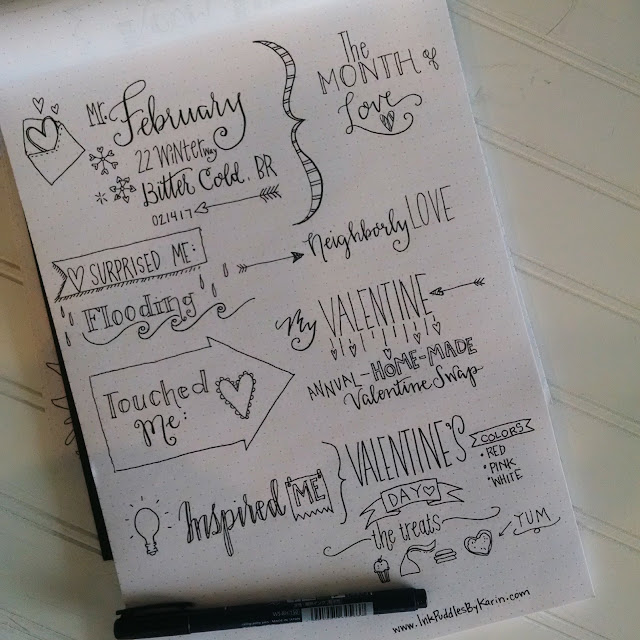 Mr. February
22 Winter Way
Bitter Cold, BR
021417
The
MONTH of
Love
SURPRISED ME:
Flooding
Neighborly LOVE
Touched
Me:
My VALENTINE
ANNUAL-HOME-MADE
Valentine Swap
Inspired ME
VALENTINE'S
DAY
COLORS
• RED
• PINK
• WHITE
the treats
YUM
www.InkPuddlesByKarin.com